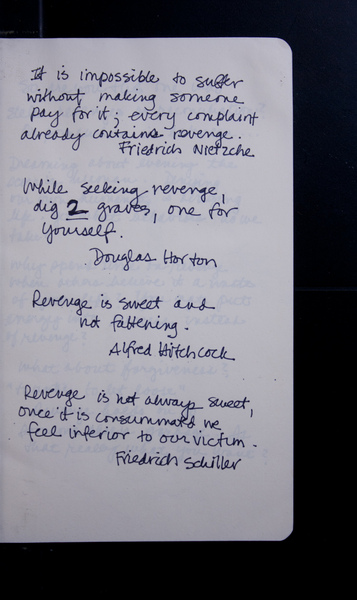 It is impossible to suffer
without making someone
pay for it; every complaint
already contains revenge.
Friedrich Nietzche
While seeking revenge,
dig 2 graves, one for
yourself.
Douglas Horton
Revenge is sweet and
not fattening.
Alfred Hitchcock
Revenge is not always sweet,
once it is consummated we
feel inferior to our victim.
Friedrich Schiller